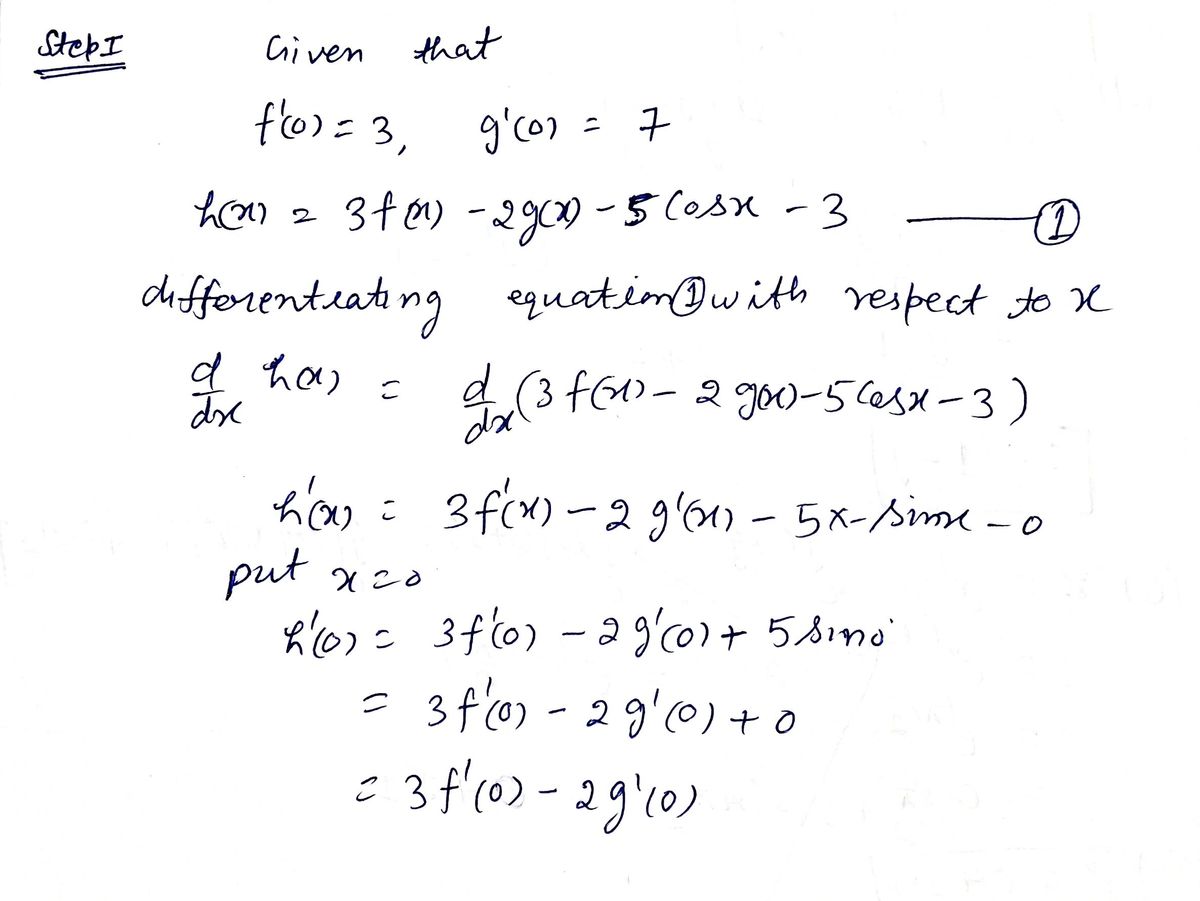 Step I Given that
f'(0) = 3, g'(0) = 7
h(x) = 3f(x) - 2g(x) - 5 Cosx - 3 ①
differentiating equation ① with respect to x
d/dx h(x) = d/dx (3f(x) - 2g(x) - 5Cosx - 3)
h'(x) = 3f'(x) - 2g'(x) - 5x-sinx - 0
put x = 0
h'(0) = 3f'(0) - 2g'(0) + 5sin0°
= 3f'(0) - 2g'(0) + 0
= 3f'(0) - 2g'(0)